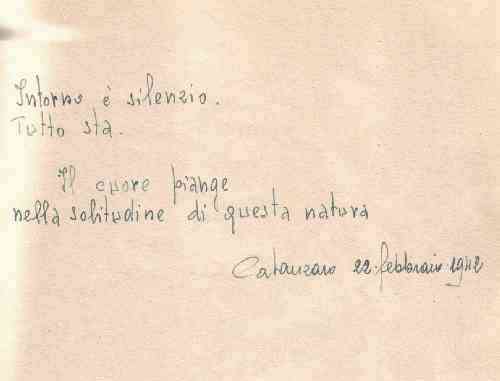 Intorno è silenzio.
Tutto sta.
Il cuore piange
nella solitudine di questa natura
Catanzaro 22 febbraio 1942